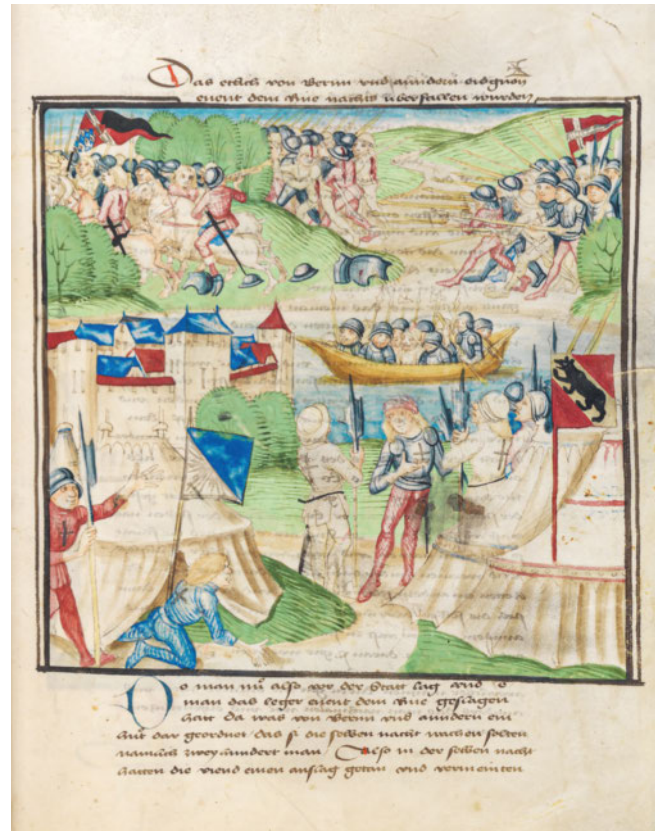 Das etlich von Bernn vnd anndern eidgnon
enent dem Rine nachts uberfallen wurden
Do man nu also vor der Statt lag vnd o
man das leger enent dem Rine geslagen
hatt da was von Bernn vnd anndern ein
hut dar geordnet das si die selben nacht wachen solten
namlich zwey hundert man Also in der selben nacht
hatten die viend einen anslag getan vnd vermeinten